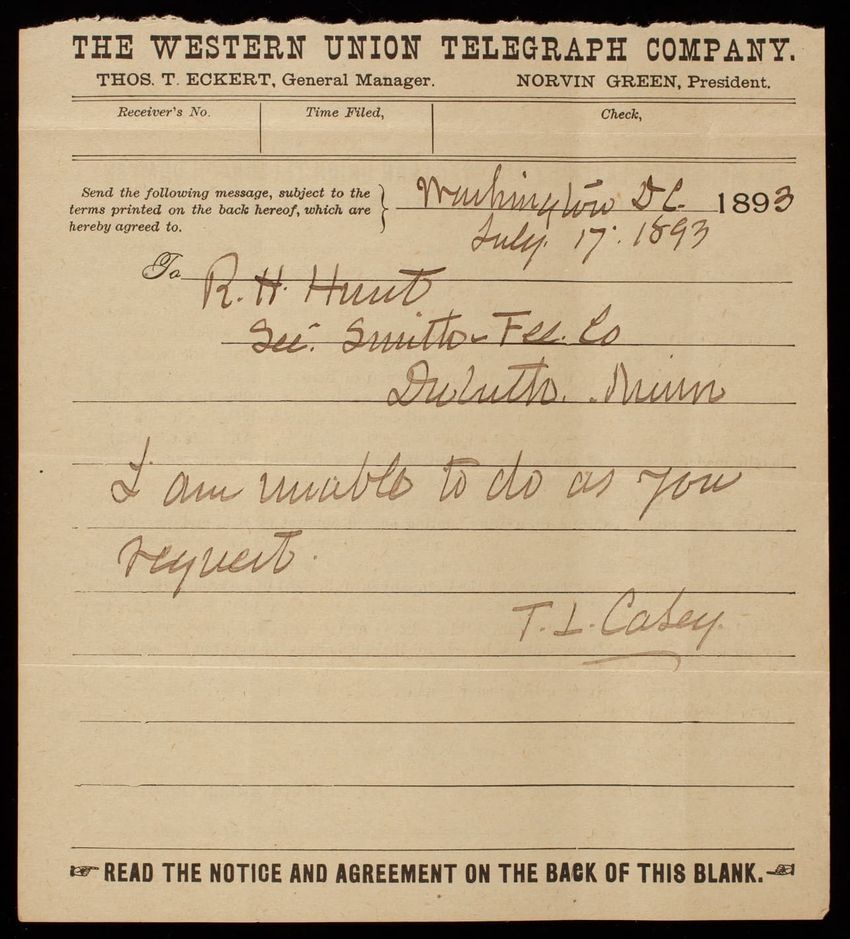 THE WESTERN UNION TELEGRAPH COMPANY.
THOS. T. ECKERT, General Manager. NORVIN GREEN, President.
Receiver's No. Time Filed, Check,
Send the following message, subject to the
terms printed on the back hereof, which are
hereby agreed to.
Washington D.C. 1893
July. 17. 1893
To R. H. Hunt
Sec. Smith - Co
Duluth. Minn
I am unable to do as you
request.
T. L. Casey.
READ THE NOTICE AND AGREEMENT ON THE BACK OF THIS BLANK.